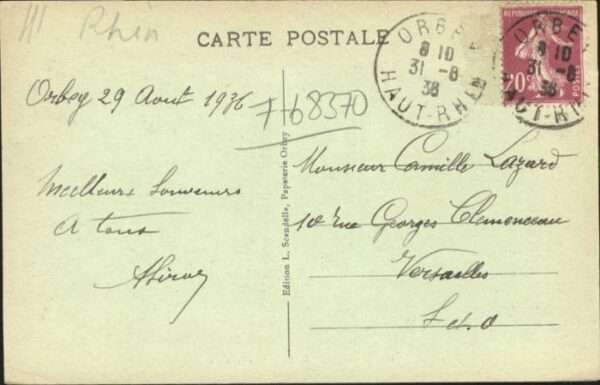 Rhin
CARTE POSTALE
ORBEY
8 10
31 -8
36
HAUT-RHIN
ORBEY
8 10
31 -8
36
HAUT-RHIN
20c
POSTES
Orbey 29 Aout 1936
7768370
Meilleurs Souvenirs
A tous
Edition L. Scandella, Papeterie Orbey
Monsieur Camille Lazard
10 rue Georges Clemenceau
Versailles
S et O